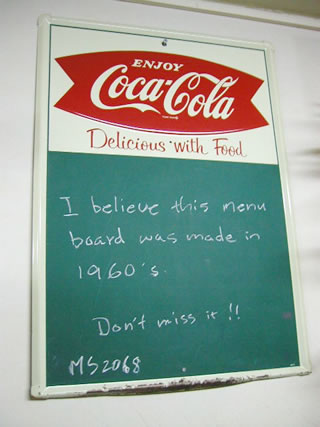 ENJOY
Coca-Cola
Delicious with Food
I believe this menu
board was made in
1960's.
Don't miss it !!
MS2068